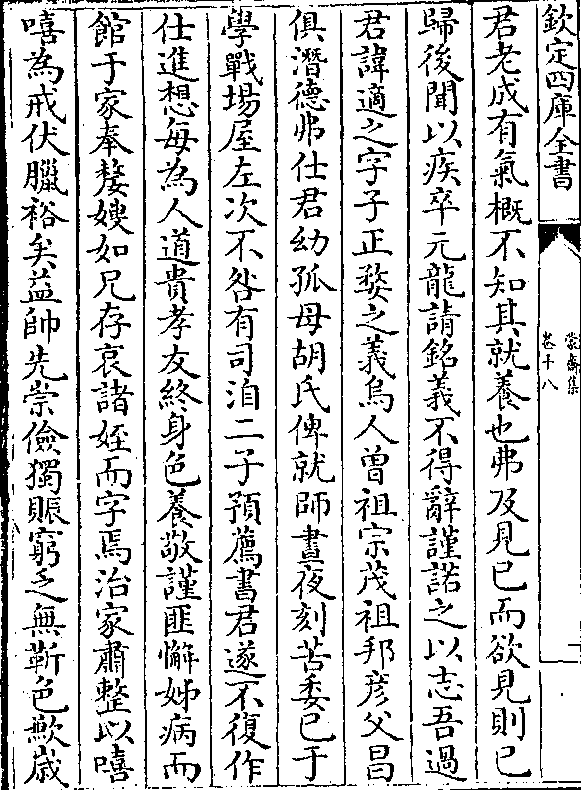 欽定四庫全書
蒙齋集
卷十八
君老成有氣概不知其就養也弗及見已而欲見則已
歸後聞以疾卒元龍請銘義不得辭謹諾之以志吾過
君諱適之字子正婺之義烏人曾祖宗茂祖邦彦父昌
俱潛德弗仕君幼孤母胡氏俾就師晝夜刻苦委已于
學戰場屋左次不咎有司洎二子預薦書君遂不復作
仕進想每為人道貴孝友終身色養敬謹匪懈姊病而
館于家奉嫠嫂如兄存哀諸姪而字焉治家肅整以嘻
嘻為戒伏臘裕矣益帥先崇儉獨賑窮乏無靳色歉歲